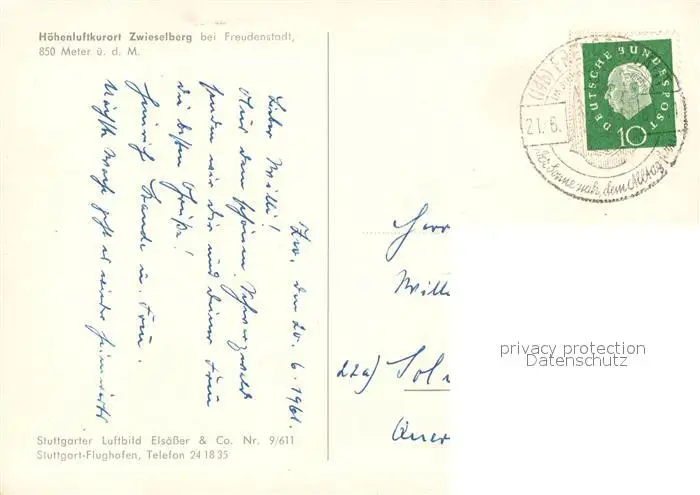 Höhenluftkurort Zwieselberg bei Freudenstadt,
850 Meter ü. d. M.
Zw., den 20.6.1961.
Lieber Willi!
Aus dem schönen Schwarzwald
senden wir dir und deiner Frau
die besten Grüße!
Heinrich u. Frau.
Nächste Woche geht es wieder heimwärts
Stuttgarter Luftbild Elsäßer & Co. Nr. 9/611
Stuttgart-Flughafen, Telefon 24 18 35
DEUTSCHE BUNDESPOST
10
21. 6.
der Sonne nah, dem Alltag
Herr
Willi
22a) Sol
privacy protection
Datenschutz